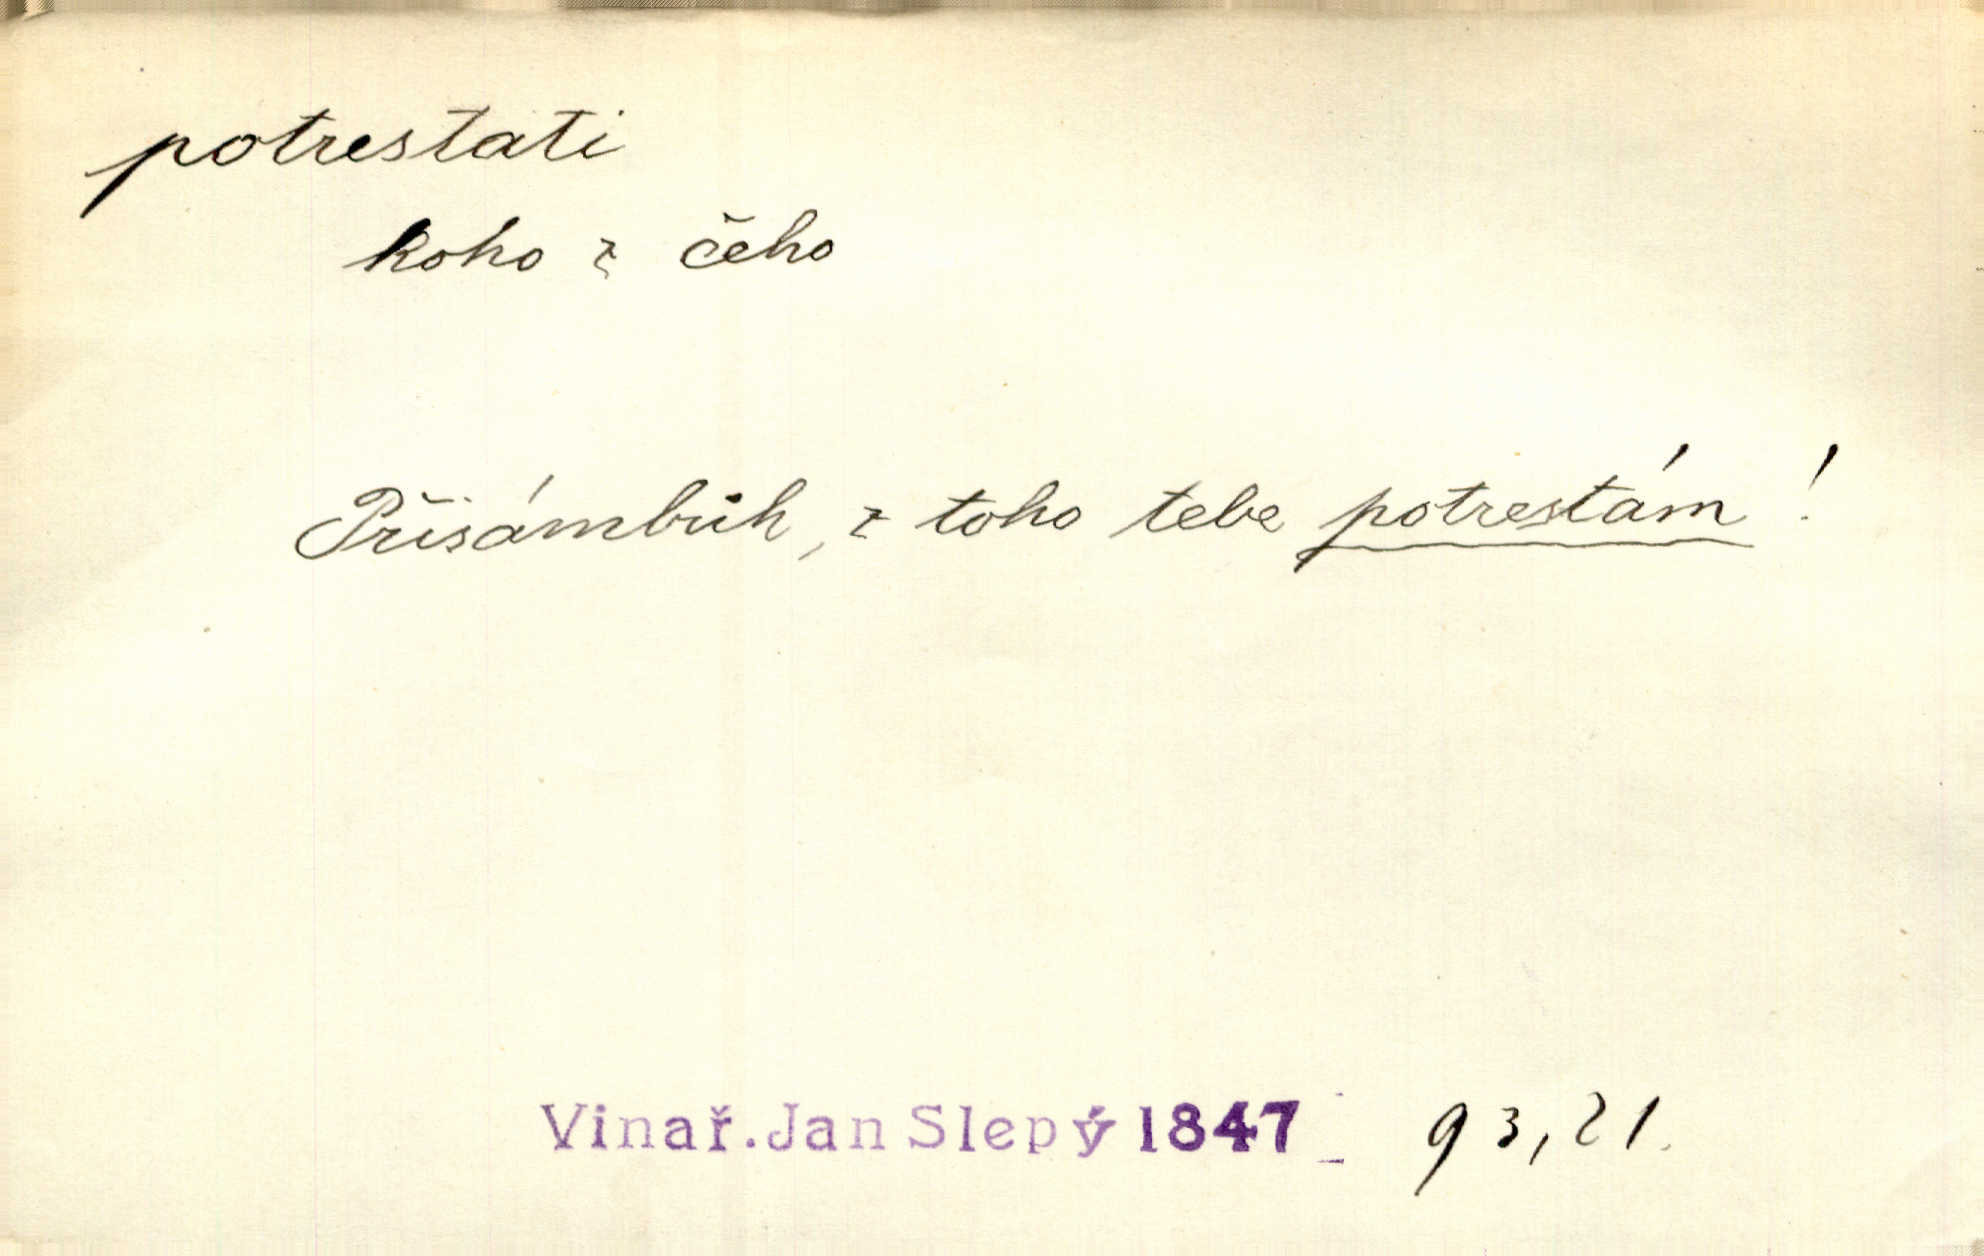 potrestati
koho z čeho
Přisámbůh, z toho tebe potrestám!
Vinař. Jan Slepý 1847 93,21.